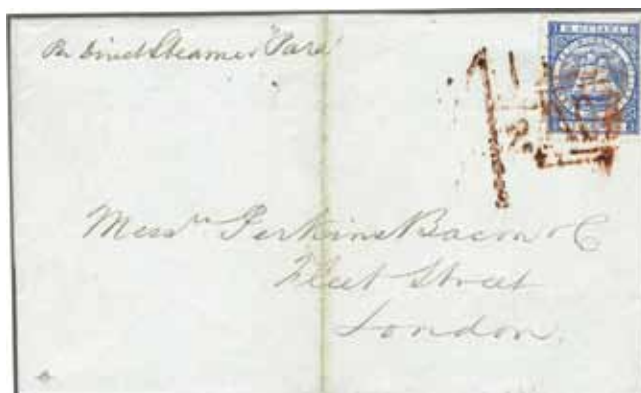 Per Direct Steamer "Pará"
B. GUIANA
Messrs Perkins Bacon & C
Fleet Street
London.